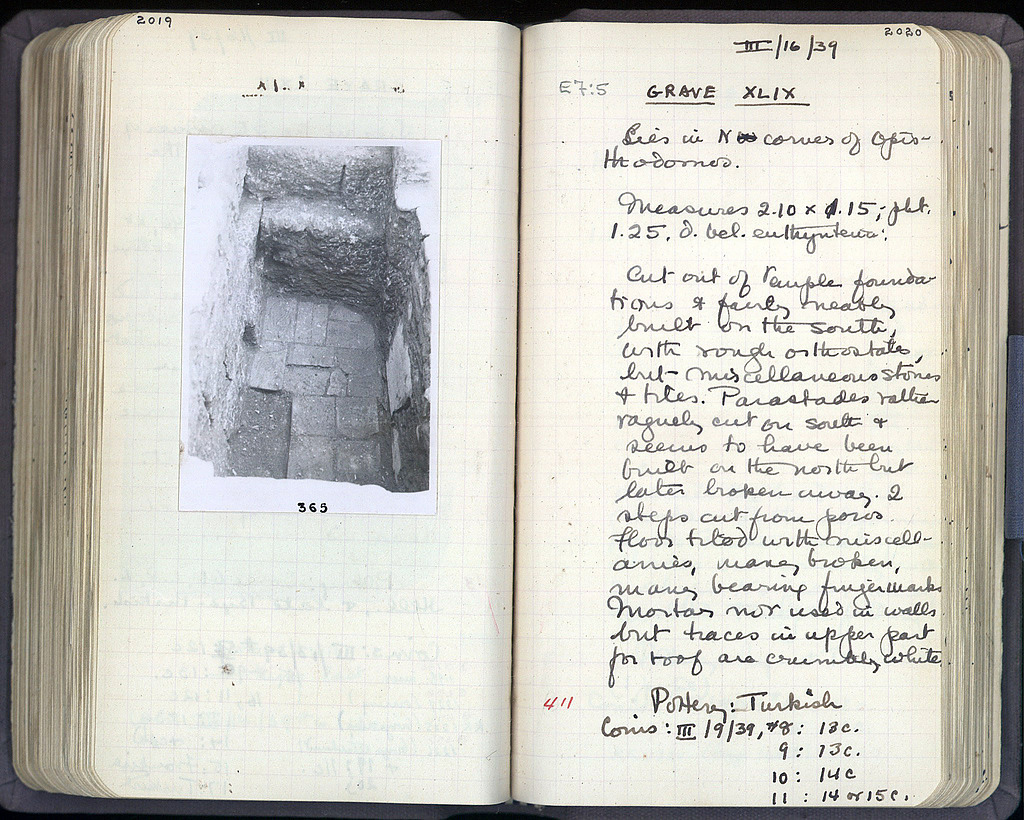 2019
365
2020
III/16/39
E7:5 GRAVE XLIX
Lies in N corner of Opis-
thodomos.
Measures 2.10 x 1.15; pht.
1.25, d. bel. euthynteria:
Cut out of Temple founda-
tions & fairly neatly
built on the south,
with rough orthostates,
but miscellaneous stones
& tiles. Parastades rather
vaguely cut on south &
seems to have been
built on the north but
later broken away. 2
steps cut from poros.
Floor tiled with miscell-
anies, many broken,
many bearing fingermarks
Mortar not used in walls
but traces in upper part
for roof are crumbly, white
411 Pottery: Turkish
Coins: III/9/39, #8: 13c.
9: 13c.
10: 14c
11: 14 or 15c.